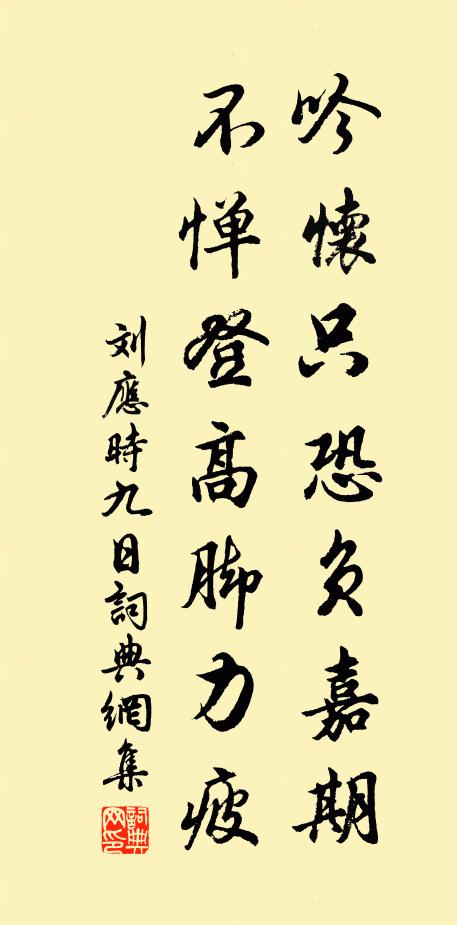 吟懷只恐負嘉期
不惮登高脚力疲
刘應時九日詞典網集
詞典
网印